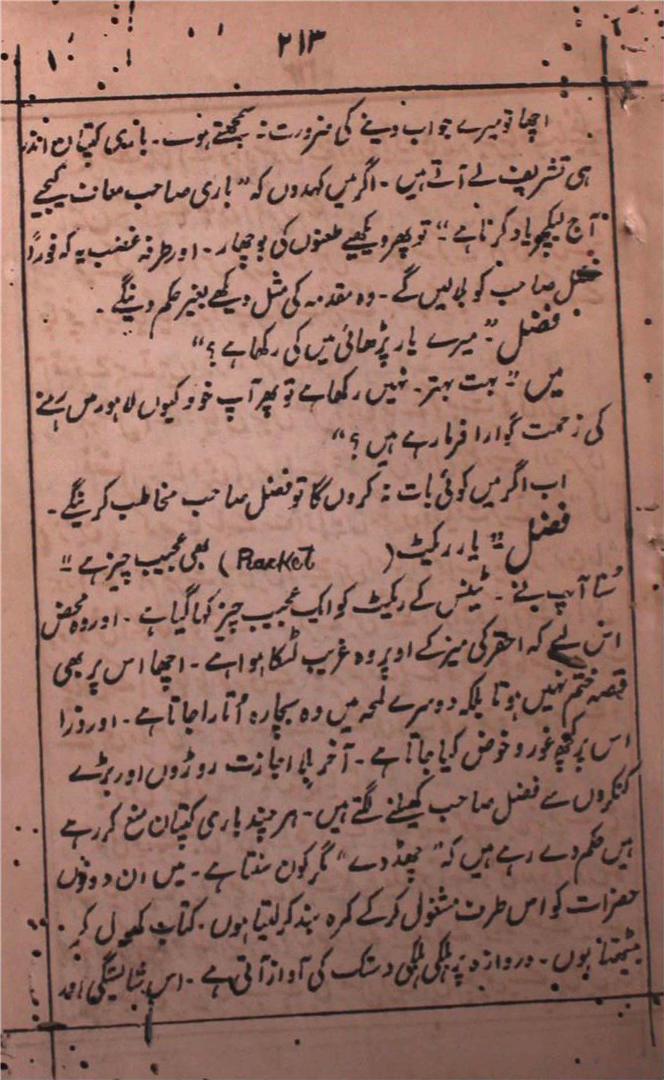 ۲۱۳
اچھا تو میرے جواب دینے کی ضرورت نہ سمجھتے ہوئے۔ باری کپتان اندر
ہی تشریف لے آتے ہیں۔ اگر میں کہدوں کہ "باری صاحب معاف کیجیے
آج لیکچر یاد کرنا ہے" تو پھر دیکھیے طعنوں کی بوچھار۔ اور طرفہ غضب یہ کہ فوراً
فضل صاحب کو بلا لیں گے۔ وہ مقدمہ کی مثل دیکھے بغیر حکم دینگے۔
فضل "میرے یار پڑھائی میں کی رکھا ہے؟"
میں "بہت بہتر۔ نہیں رکھا ہے تو پھر آپ خود کیوں لاہور میں رہنے
کی زحمت گوارا فرما رہے ہیں؟"
اب اگر میں کوئی بات نہ کروں گا تو فضل صاحب مخاطب کرینگے۔
فضل "یار ریکٹ (Racket) بھی عجیب چیز ہے"
سُنا آپ نے۔ ٹینس کے ریکٹ کو ایک عجیب چیز کہا گیا ہے۔ اور وہ محض
اس لیے کہ احقر کی میز کے اوپر وہ غریب لٹکا ہوا ہے۔ اچھا اس پر بھی
قصہ ختم نہیں ہوتا بلکہ دوسرے لمحہ میں وہ بیچارہ اُتارا جاتا ہے۔ اور ذرا
اس پر کچھ غور و خوض کیا جاتا ہے۔ آخر بلا اجازت روڑوں اور بڑے
کنکروں سے فضل صاحب کھیلنے لگتے ہیں۔ ہر چند باری کپتان منع کر رہے
ہیں حکم دے رہے ہیں کہ "چھڈ دے" مگر کون سنتا ہے۔ میں ان دونوں
حضرات کو اس طرف مشغول کر کے کمرہ بند کر لیتا ہوں۔ کتاب کھول کر
بیٹھتا ہوں۔ دروازہ پر ہلکی ہلکی دستک کی آواز آتی ہے۔ اس شائستگی اور